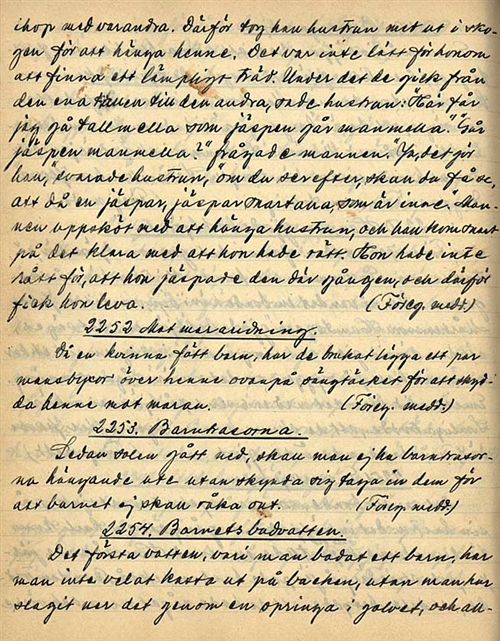 ihop med varandra. Därför tog han hustrun med ut i sko-
gen för att hänga henne. Det var inte lätt för honom
att finna ett lämpligt träd. Under det de gick från
den ena tallen till den andra, sade hustrun: "Här får
jag gå tallmella som jäspen går manmella." "Går
jäspen manmella?" frågade mannen. Ja, det gör
han, svarade hustrun, om du ser efter, skall du få se,
att då en jäspar, jäspar snart alla, som är inne. Man-
nen uppsköt med att hänga hustrun, och han kom snart
på det klara med att hon hade rätt. Hon hade inte
rått för, att hon jäspade den där gången, och därför
fick hon leva. (Föreg. medd.)
2252 Mot mararidning.
Då en kvinna fått barn, har de brukat lägga ett par
mansbyxor över henne ovanpå sängtäcket för att skyd-
da henne mot maran. (Föreg. medd.)
2253. Barntrasorna.
Sedan solen gått ned, skall man ej ha barntrasor-
na hängande ute utan skynda sig taga in dem för
att barnet ej skall råka ont. (Föreg. medd.)
2254. Barnets badvatten.
Det första vatten, vari man badat ett barn, har
man inte velat kasta ut på backen, utan man har
slagit ner det genom en springa i golvet, och all-